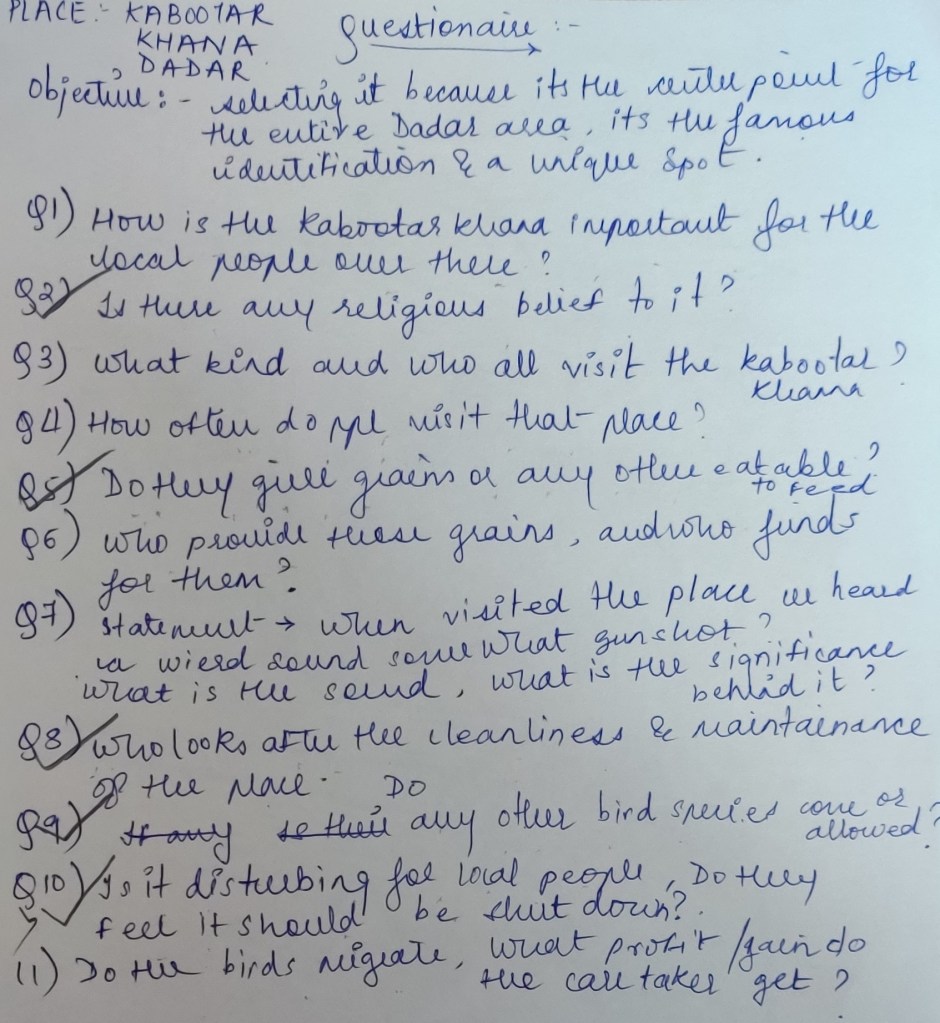 PLACE :- KABOOTAR
KHANA
DADAR
Questionaire :-
Objective : - selecting it because its the center point for
the entire Dadar area, its the famous
identification & a unique spot.
Q1) How is the Kabootar khana important for the
local people over there ?
Q2) Is there any religious belief to it ?
Q3) what kind and who all visit the kabootar ?
khana
Q4) How often do ppl visit that place ?
Q5) Do they give grains or any other eatable ?
to feed
Q6) who provide these grains, and who funds
for them ?
Q7) statement → when visited the place we heard
a wierd sound somewhat gunshot ?
what is the sound, what is the significance
behind it ?
Q8) who looks after the cleanliness & maintainance
of the place .
DO
Q9) If any is their any other bird species come or
allowed ?
Q10) Is it disturbing for local people, Do they
feel it should be shut down ?
11) Do the birds migrate, what profit /gain do
the care taker get ?